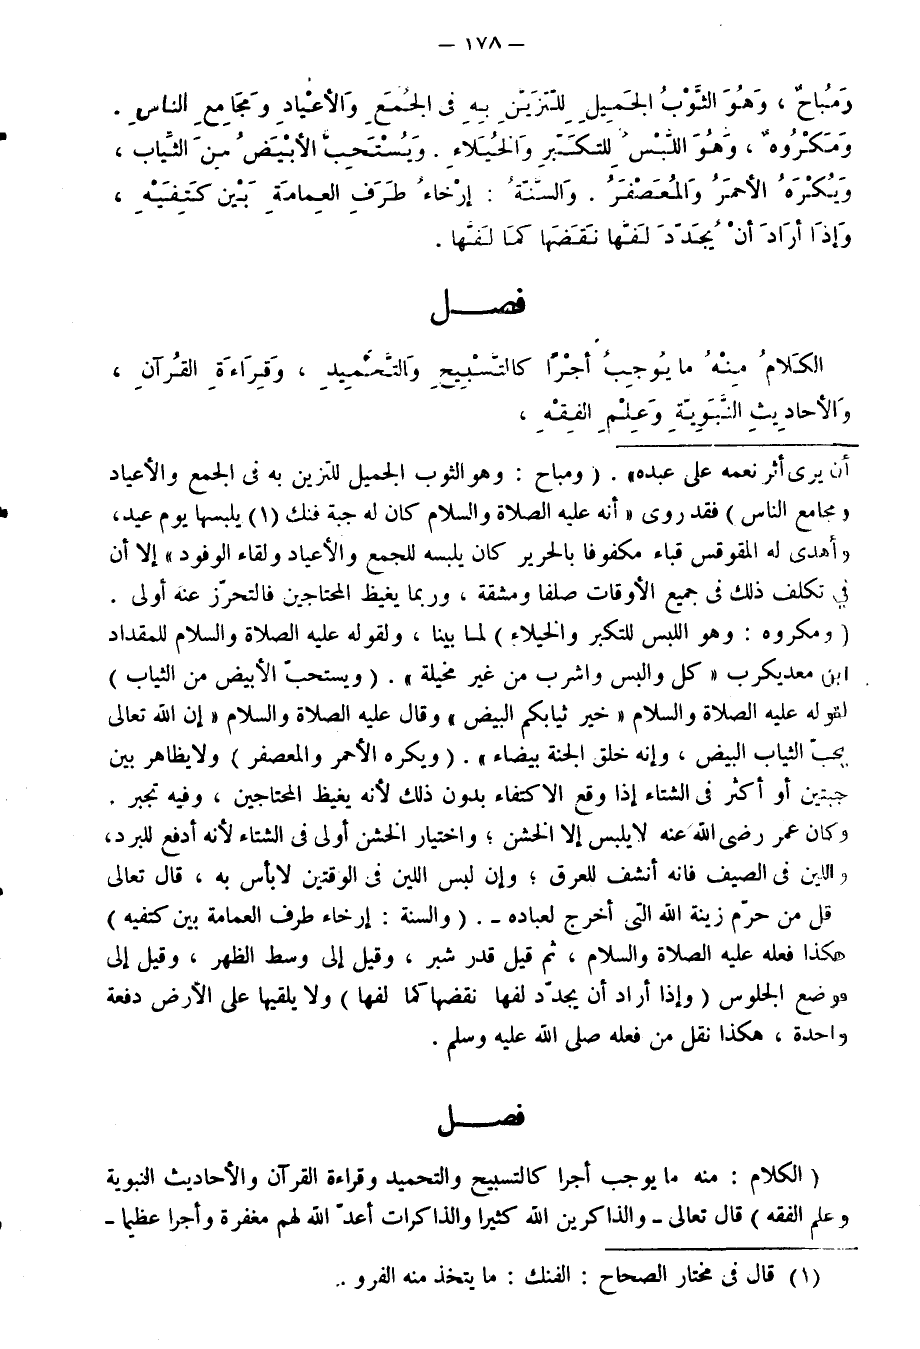 — ١٧٨ —
وَمُبَاحٌ ، وَهُوَ الثَّوْبُ الجَمِيلِ لِلتَزَيّنِ بِهِ فى الجُمَعِ وَالأَعْيَادِ وَمَجَامِعِ الناسِ .
وَمَكْرُوهٌ ، وَهُوَ اللبْسُ لِلتكَبّرِ وَالخُيَلَاءِ . وَيُسْتَحَبُّ الأبْيَضُ مِنَ الثيَابِ ،
وَيُكْرَهُ الأحمَرُ وَالمُعَصْفَرُ . وَالسنَّةُ : إرْخَاءُ طَرَفِ العِمامَةِ بَيْنَ كَتِفَيْهِ ،
وَإذَا أرَادَ أنْ يُجَدّدَ لَفهَا نَقَضَهَا كمَا لَفهَا .
فصــل
الكَلَامُ مِنْهُ ما يُوجِبُ أجْرًا كالتسْبِيحِ وَالتحْمِيدِ ، وَقِرَاءَةِ القُرآنِ ،
وَالأحادِيثِ النبَوِيّةِ وَعِلْمِ الفِقْهِ ،
أن يرى أثر نعمه على عبده» . ( ومباح : وهو الثوب الجميل للتزين به فى الجمع والأعياد
ومجامع الناس ) فقد روى « أنه عليه الصلاة والسلام كان له جبة فنك (١) يلبسها يوم عيد،
وأهدى له المقوقس قباء مكفوفا بالحرير كان يلبسه للجمع والأعياد ولقاء الوفود » إلا أن
فى تكلف ذلك فى جميع الأوقات صلفا ومشقة ، وربما يغيظ المحتاجين فالتحرّز عنه أولى .
( ومكروه : وهو اللبس للتكبر والخيلاء ) لما بينا ، ولقوله عليه الصلاة والسلام للمقداد
ابن معديكرب « كل والبس واشرب من غير مخيلة » . ( ويستحبّ الأبيض من الثياب )
لقوله عليه الصلاة والسلام « خير ثيابكم البيض » وقال عليه الصلاة والسلام « إن الله تعالى
يحبّ الثياب البيض ، وإنه خلق الجنة بيضاء » . ( ويكره الأحمر والمعصفر ) ولايظاهر بين
جبتين أو أكثر فى الشتاء إذا وقع الاكتفاء بدون ذلك لأنه يغيظ المحتاجين ، وفيه تجبر .
وكان عمر رضى الله عنه لايلبس إلا الخشن ؛ واختيار الخشن أولى فى الشتاء لأنه أدفع للبرد،
واللين فى الصيف فانه أنشف للعرق ؛ وإن لبس اللين فى الوقتين لابأس به ، قال تعالى
قل من حرّم زينة الله التى أخرج لعباده - . ( والسنة : إرخاء طرف العمامة بين كتفيه )
هكذا فعله عليه الصلاة والسلام ، ثم قيل قدر شبر ، وقيل إلى وسط الظهر ، وقيل إلى
موضع الجلوس ( وإذا أراد أن يجدّد لفها نقضها كما لفها ) ولا يلقيها على الأرض دفعة
واحدة ، هكذا نقل من فعله صلى الله عليه وسلم .
فصــل
( الكلام : منه ما يوجب أجرا كالتسبيح والتحميد وقراءة القرآن والأحاديث النبوية
وعلم الفقه ) قال تعالى - والذاكرين الله كثيرا والذاكرات أعدّ الله لهم مغفرة وأجرا عظيما -
(١) قال فى مختار الصحاح : الفنك : ما يتخذ منه الفرو ..